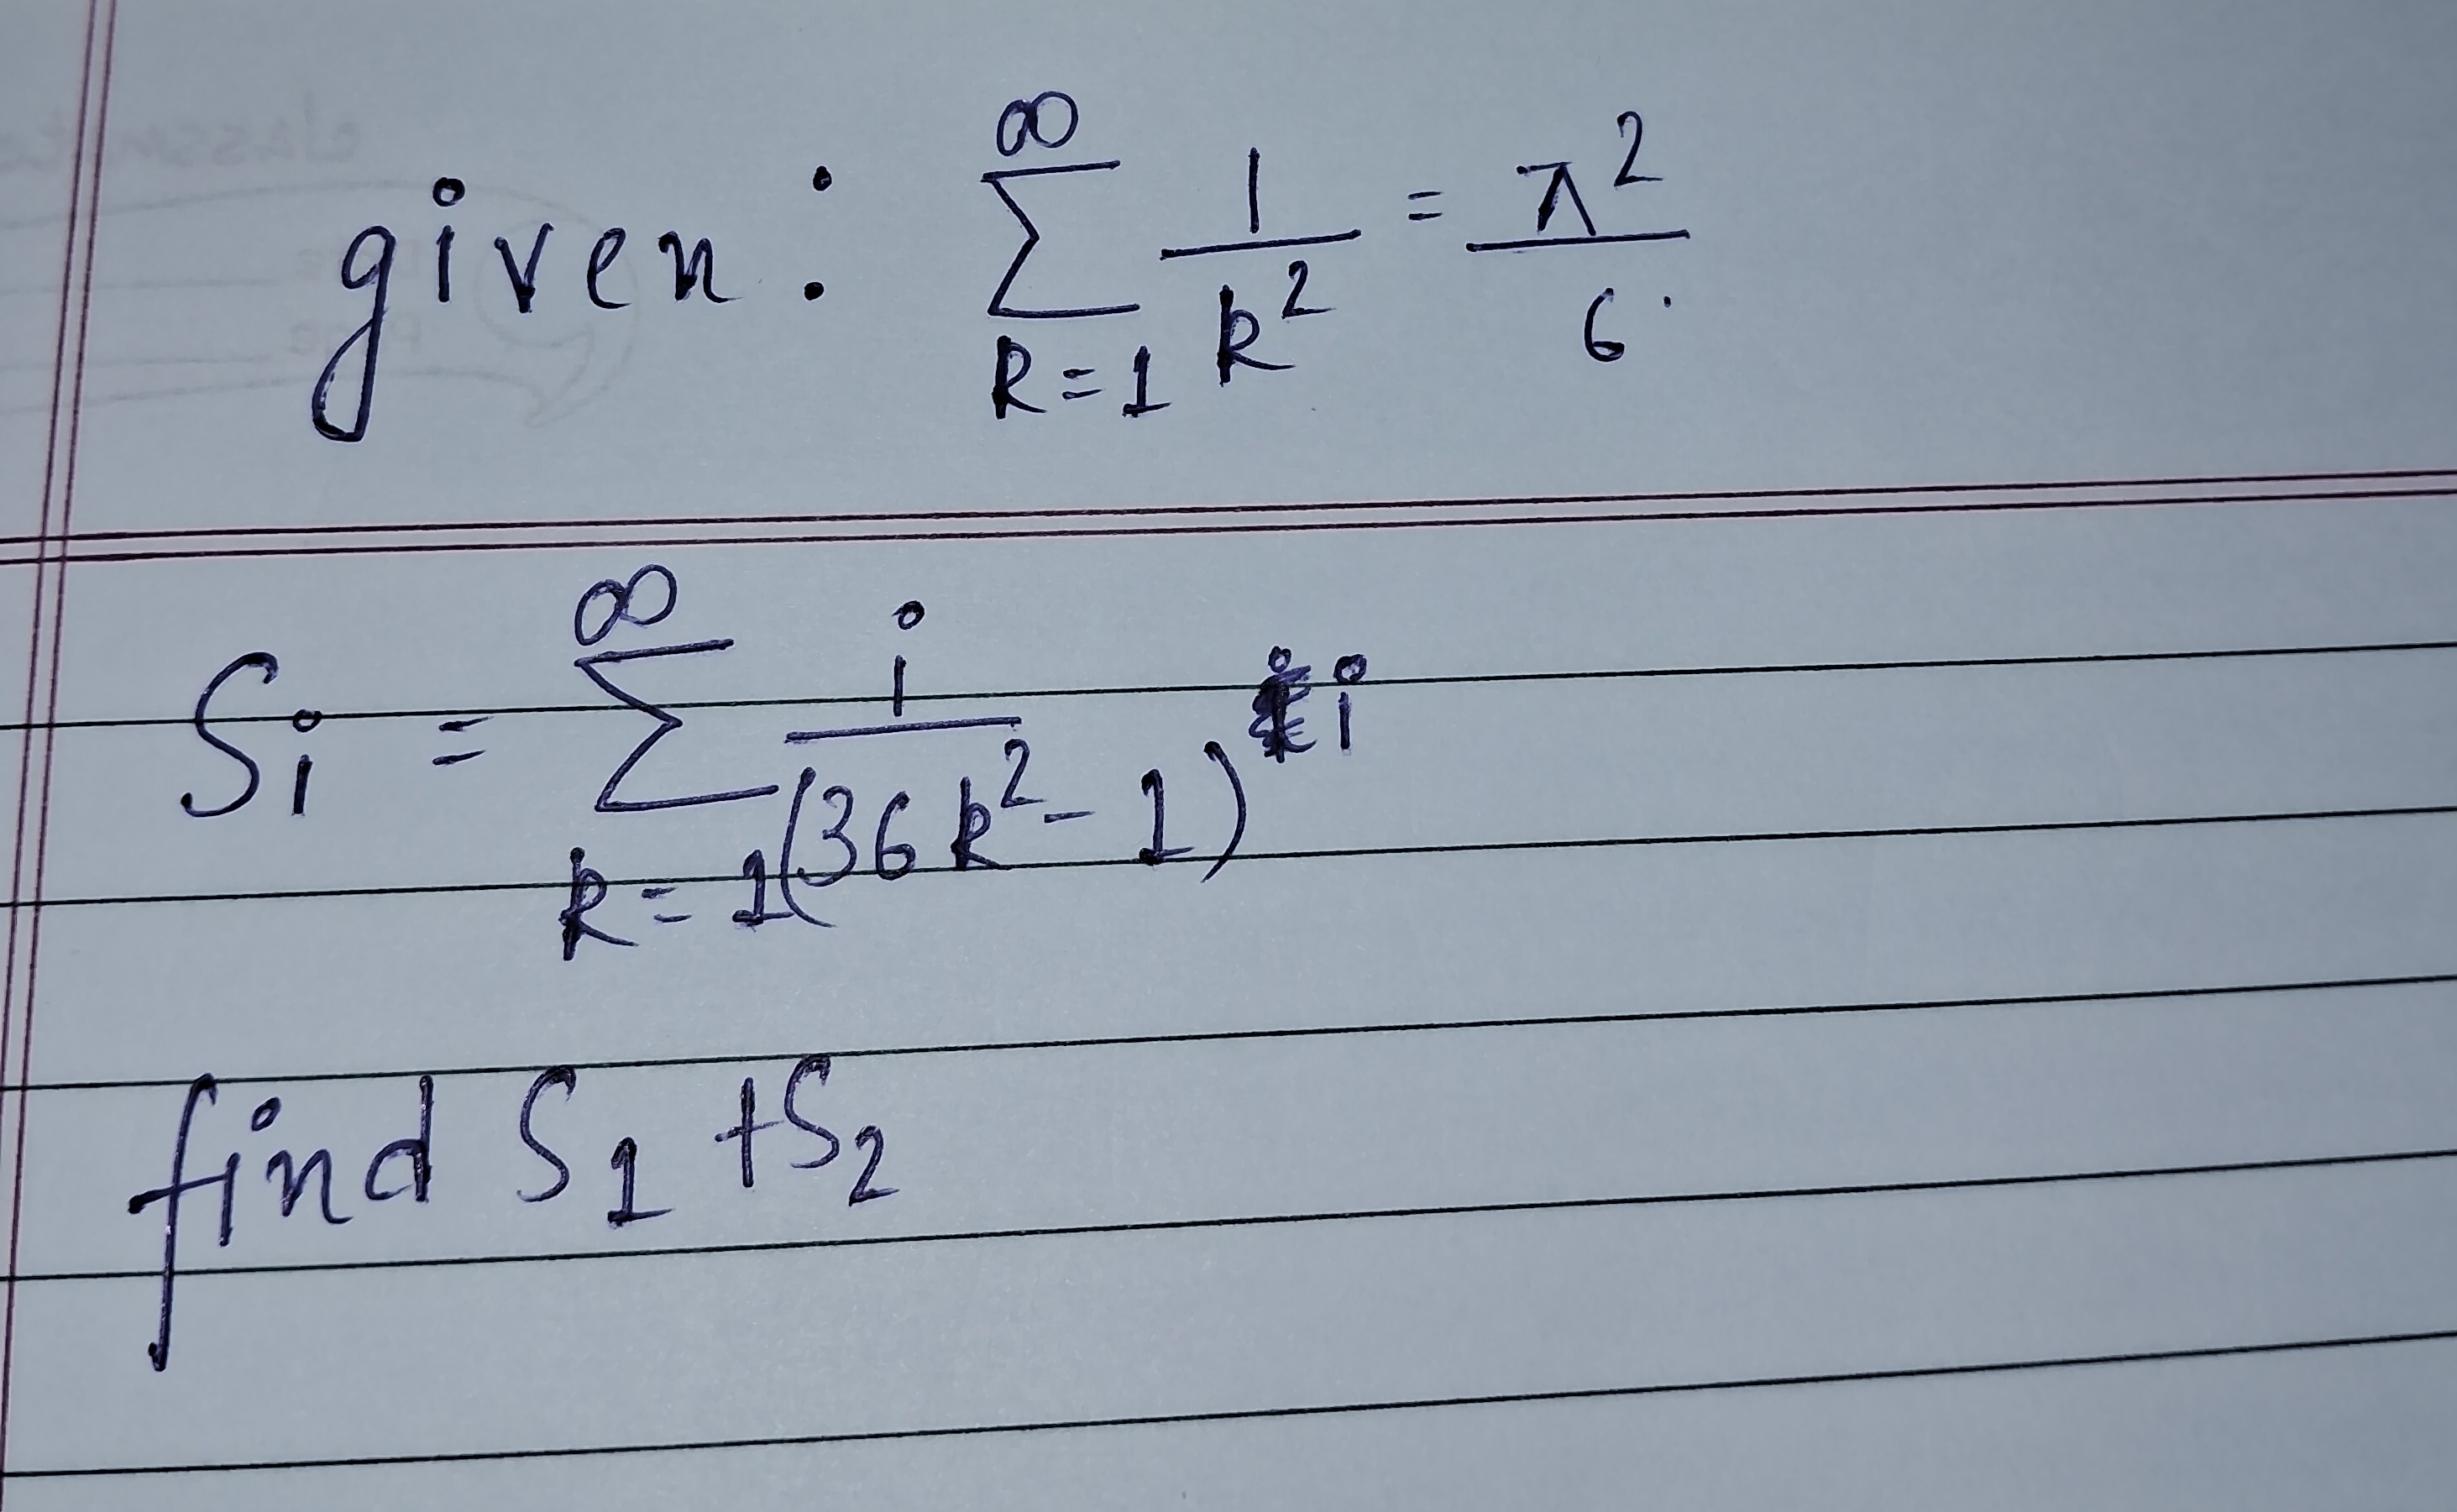 given : ∞∑k=1 1/k² = π²/6
Si = ∞∑k=1 i/(36k²-1)^i
find S1 + S2